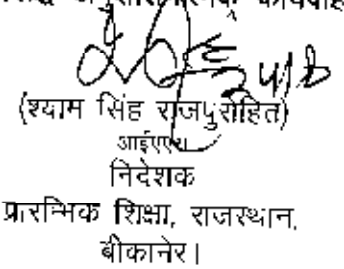 (श्याम सिंह राजपुरोहित)
आईएएस
निदेशक
प्रारम्भिक शिक्षा, राजस्थान,
बीकानेर।